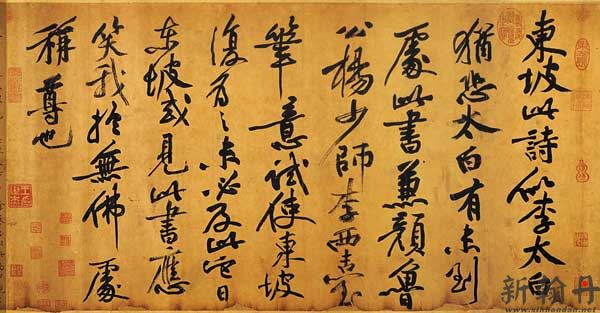 東坡此詩似李太白
猶恐太白有未到
處此書兼顏魯
公楊少師李西臺
筆意試使東坡
復為之未必及此它日
東坡或見此書應
笑我於無佛處
稱尊也
新翰丹
www.xinhandan.net